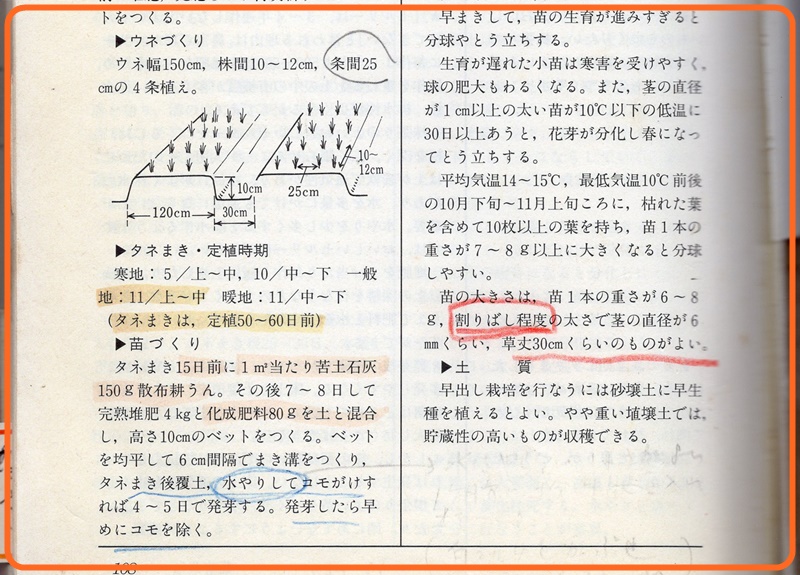 トをつくる。
▶ウネづくり
ウネ幅150cm，株間10～12cm，条間25
cmの４条植え。
10～
12cm
10cm
25cm
120cm
30cm
▶タネまき・定植時期
寒地：５／上～中，10／中～下　一般
地：11／上～中　暖地：11／中～下
（タネまきは，定植50～60日前）
▶苗づくり
タネまき15日前に１㎡当たり苦土石灰
150ｇ散布耕うん。その後７～８日して
完熟堆肥４kgと化成肥料80ｇを土と混合
し，高さ10cmのベットをつくる。ベット
を均平して６cm間隔でまき溝をつくり，
タネまき後覆土，水やりしてコモがけす
れば４～５日で発芽する。発芽したら早
めにコモを除く。
108
早まきして，苗の生育が進みすぎると
分球やとう立ちする。
生育が遅れた小苗は寒害を受けやすく，
球の肥大もわるくなる。また，茎の直径
が１cm以上の太い苗が10℃以下の低温に
30日以上あうと，花芽が分化し春になっ
てとう立ちする。
平均気温14～15℃，最低気温10℃前後
の10月下旬～11月上旬ころに，枯れた葉
を含めて10枚以上の葉を持ち，苗１本の
重さが７～８ｇ以上に大きくなると分球
しやすい。
苗の大きさは，苗１本の重さが６～８
ｇ，割りばし程度の太さで茎の直径が６
mmくらい，草丈30cmくらいのものがよい。
▶土　　質
早出し栽培を行なうには砂壌土に早生
種を植えるとよい。やや重い埴壌土では，
貯蔵性の高いものが収穫できる。